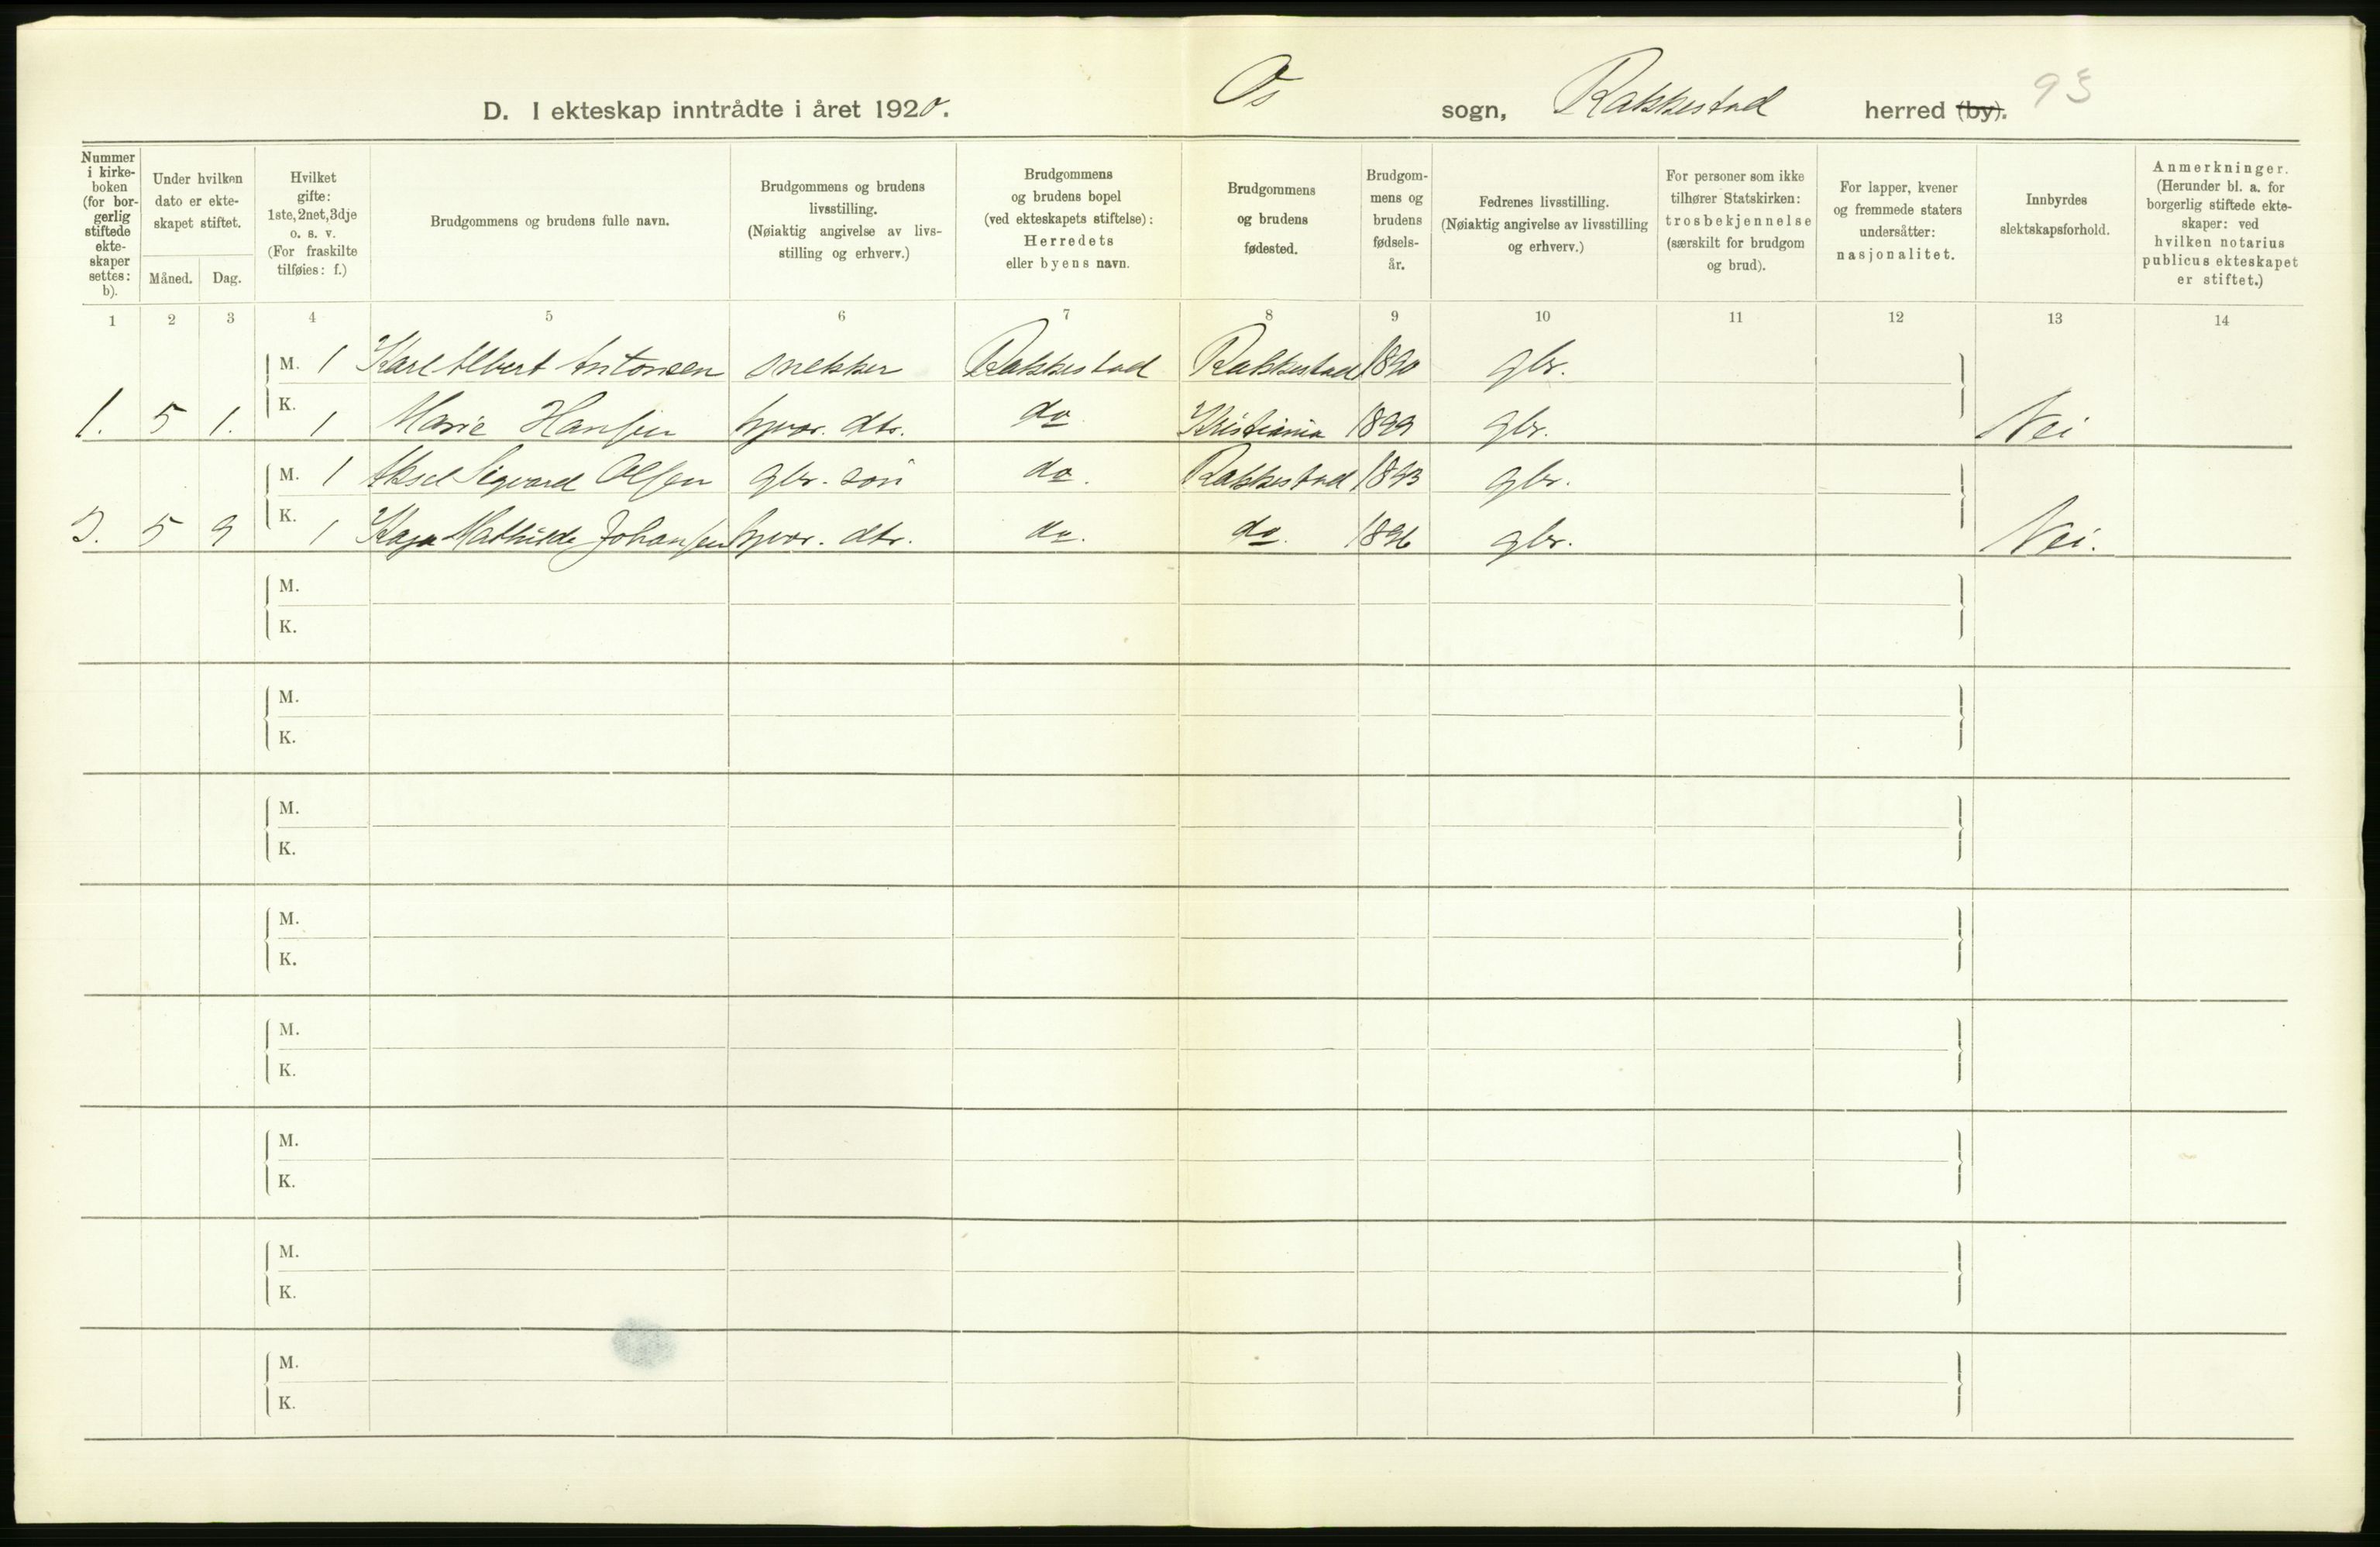 D. I ekteskap inntrådte i året 1920. Os sogn, Rakkestad herred (by). 93
Nummer i kirkeboken (for borgerlig stiftede ekteskaper settes: b).
Under hvilken dato er ekteskapet stiftet.
Måned. Dag.
Hvilket gifte: 1ste, 2net, 3dje o. s. v. (For fraskilte tilføies: f.)
Brudgommens og brudens fulle navn.
Brudgommens og brudens livsstilling. (Nøiaktig angivelse av livsstilling og erhverv.)
Brudgommens og brudens bopel (ved ekteskapets stiftelse): Herredets eller byens navn.
Brudgommens og brudens fødested.
Brudgommens og brudens fødselsår.
Fedrenes livsstilling. (Nøiaktig angivelse av livsstilling og erhverv.)
For personer som ikke tilhører Statskirken: trosbekjennelse (særskilt for brudgom og brud).
For lapper, kvener og fremmede staters undersåtter: nasjonalitet.
Innbyrdes slektskapsforhold.
Anmerkninger. (Herunder bl. a. for borgerlig stiftede ekteskaper: ved hvilken notarius publicus ekteskapet er stiftet.)
1 2 3 4 5 6 7 8 9 10 11 12 13 14
M. 1 Karl Albert Antonsen snekker Rakkestad Rakkestad 1890 gbr.
1. 5 1. K. 1 Marie Hansen hjvær. dtr. do. Kristiania 1899 gbr. Nei
M. 1 Aksel Sigvard Olsen gbr. søn do. Rakkestad 1893 gbr.
5 9 K. 1 Kaja Mathilde Johansen hjvær. dtr. do. do. 1896 gbr. Nei.
M.
K.
M.
K.
M.
K.
M.
K.
M.
K.
M.
K.
M.
K.
M.
K.